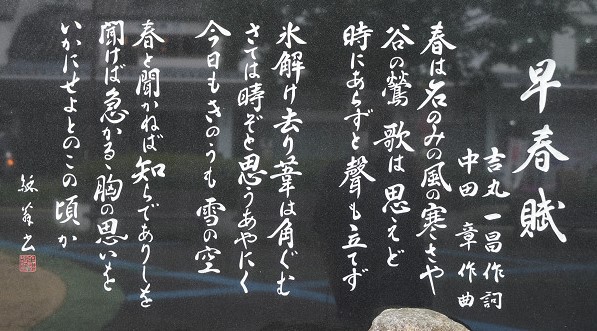 早春賦
吉丸一昌 作詞
中田 章 作曲
春は名のみの風の寒さや
谷の鶯 歌は思えど
時にあらずと聲も立てず
氷解け去り葦は角ぐむ
さては時ぞと思うあやにく
今日もきのうも雪の空
春と聞かねば知らでありしを
聞けば急かるゝ胸の思いを
いかにせよとのこの頃か